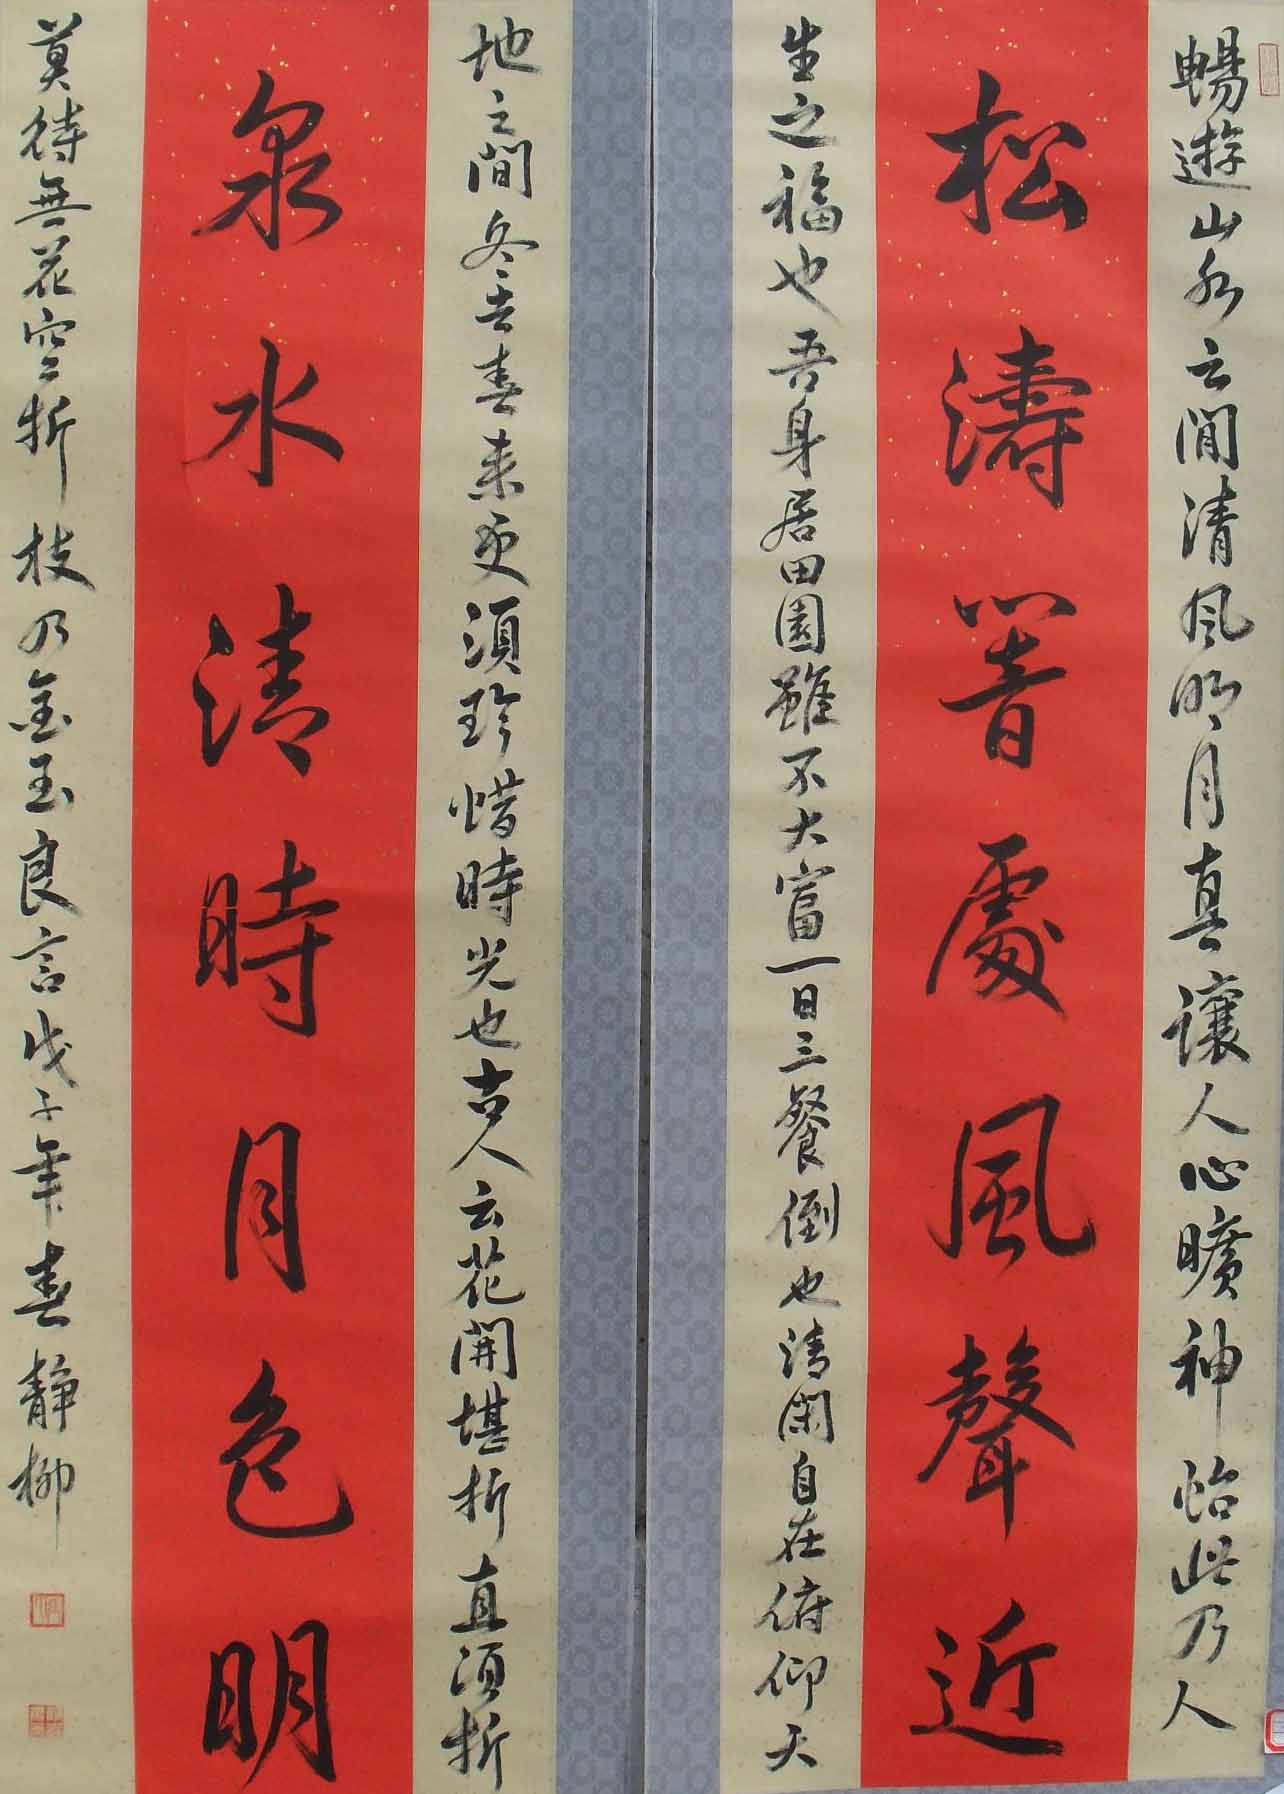 暢遊山水之間清風明月真讓人心曠神怡此乃人
松濤響處風聲近
生之福也吾身居田園雖不大富一日三餐倒也清閑自在俯仰天
地之間冬去春來更須珍惜時光也古人云花開堪折直須折
泉水清時月色明
莫待無花空折枝乃金玉良言戊子年春靜柳